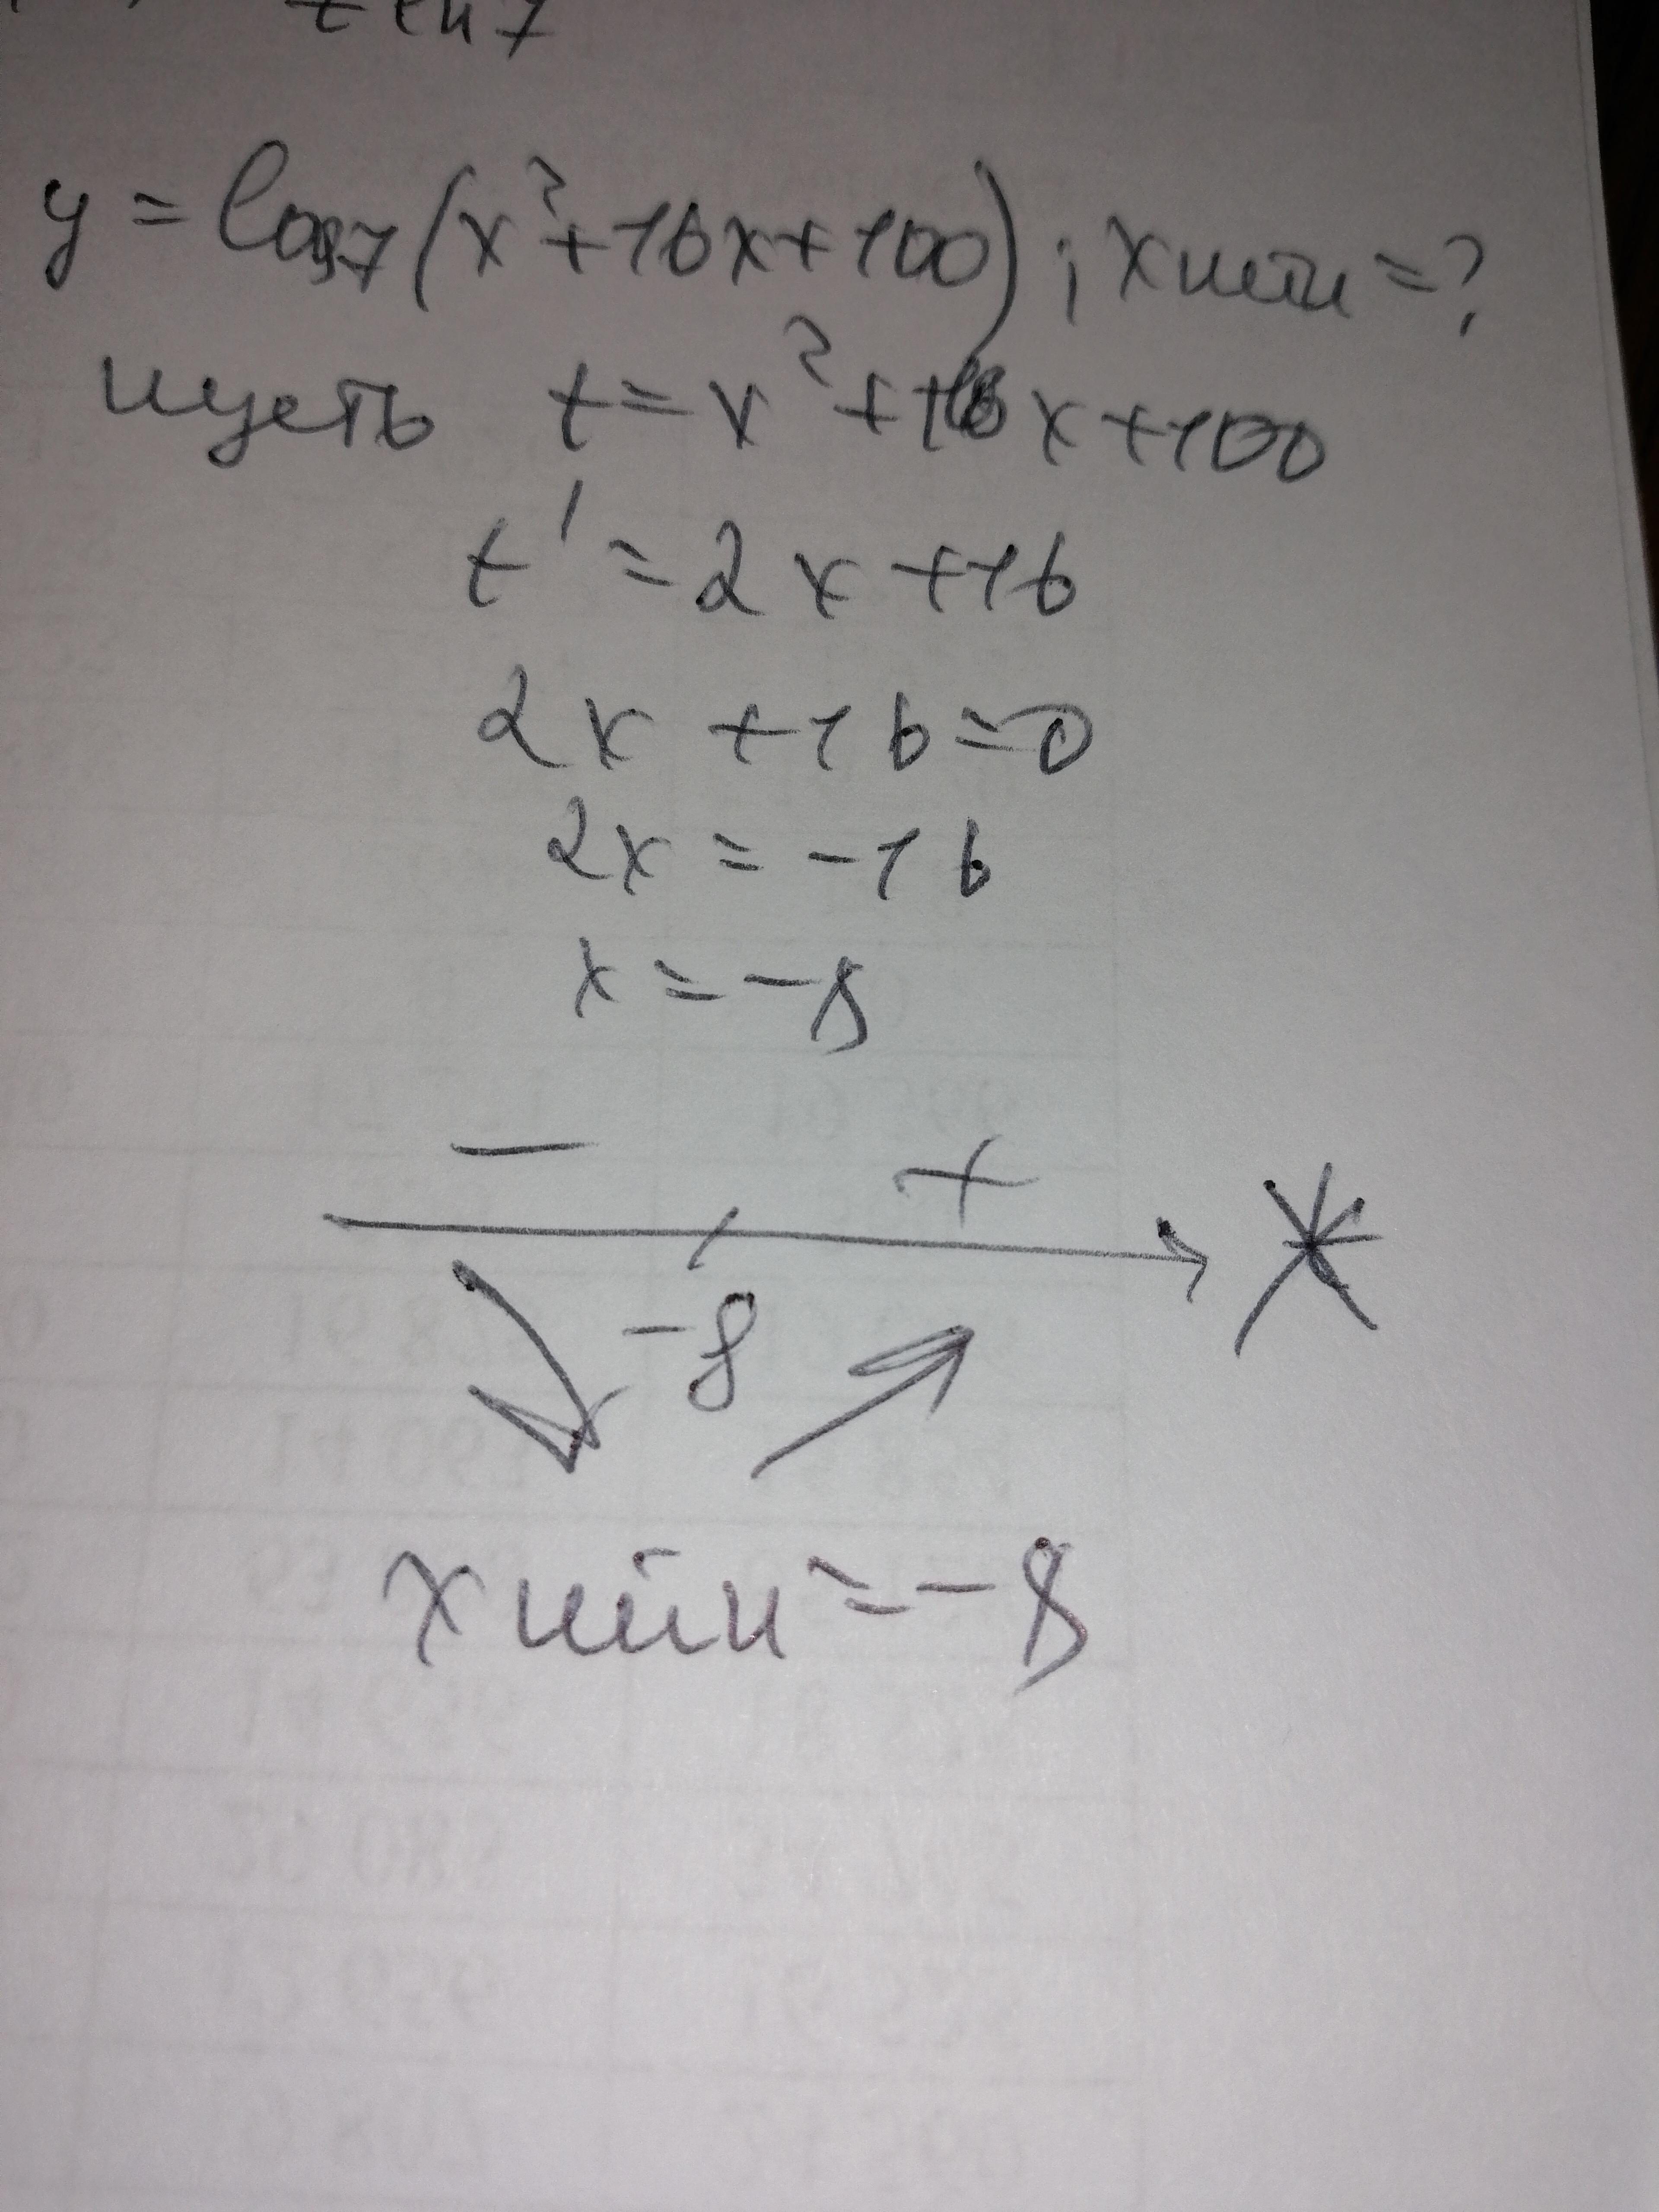 y = log7(x²+16x+100); xmin=?
пусть t=x²+16x+100
t'=2x+16
2x+16=0
2x=-16
x=-8
- +
-8
x
xmin=-8